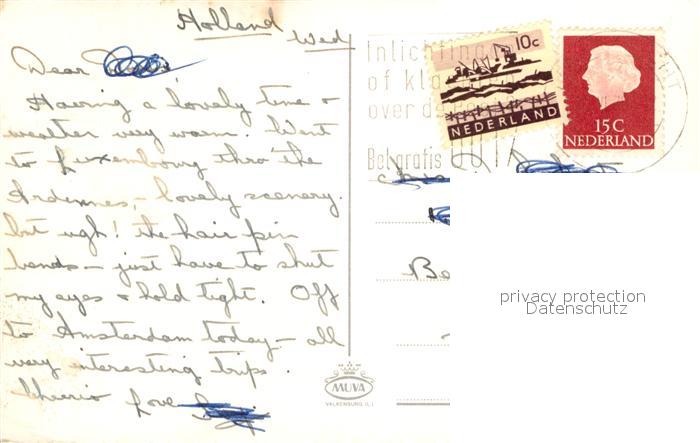 Holland
Wed
Dear
Having a lovely time &
weather very warm. Went
to Luxembourg thro' the
Ardennes, - lovely scenery.
but ugh! the hair pin
bends - just have to shut
my eyes & hold tight. Off
to Amsterdam today - all
very interesting trips.
Cheerio Love
MUVA
VALKENBURG (L.)
Inlichting
of kla
over de
Bel gratis 0017
10c
NEDERLAND
15C
NEDERLAND
Be
privacy protection
Datenschutz